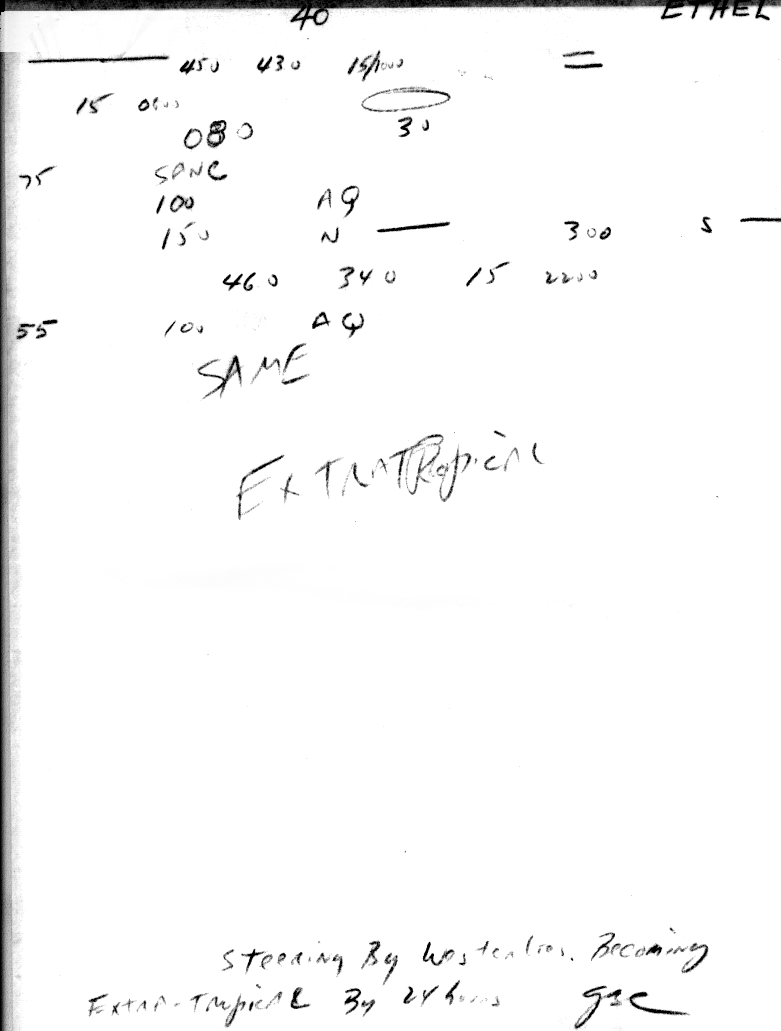 40 ETHEL
450 430 15/1000
15
080 30
75
100 AQ
150 N 300 S
460 340 15 2200
55 100 AQ
SAME
EXTRATRopicAL
Steering By Westerlies. Becoming
Extra-Tropical By 24 hours gsc